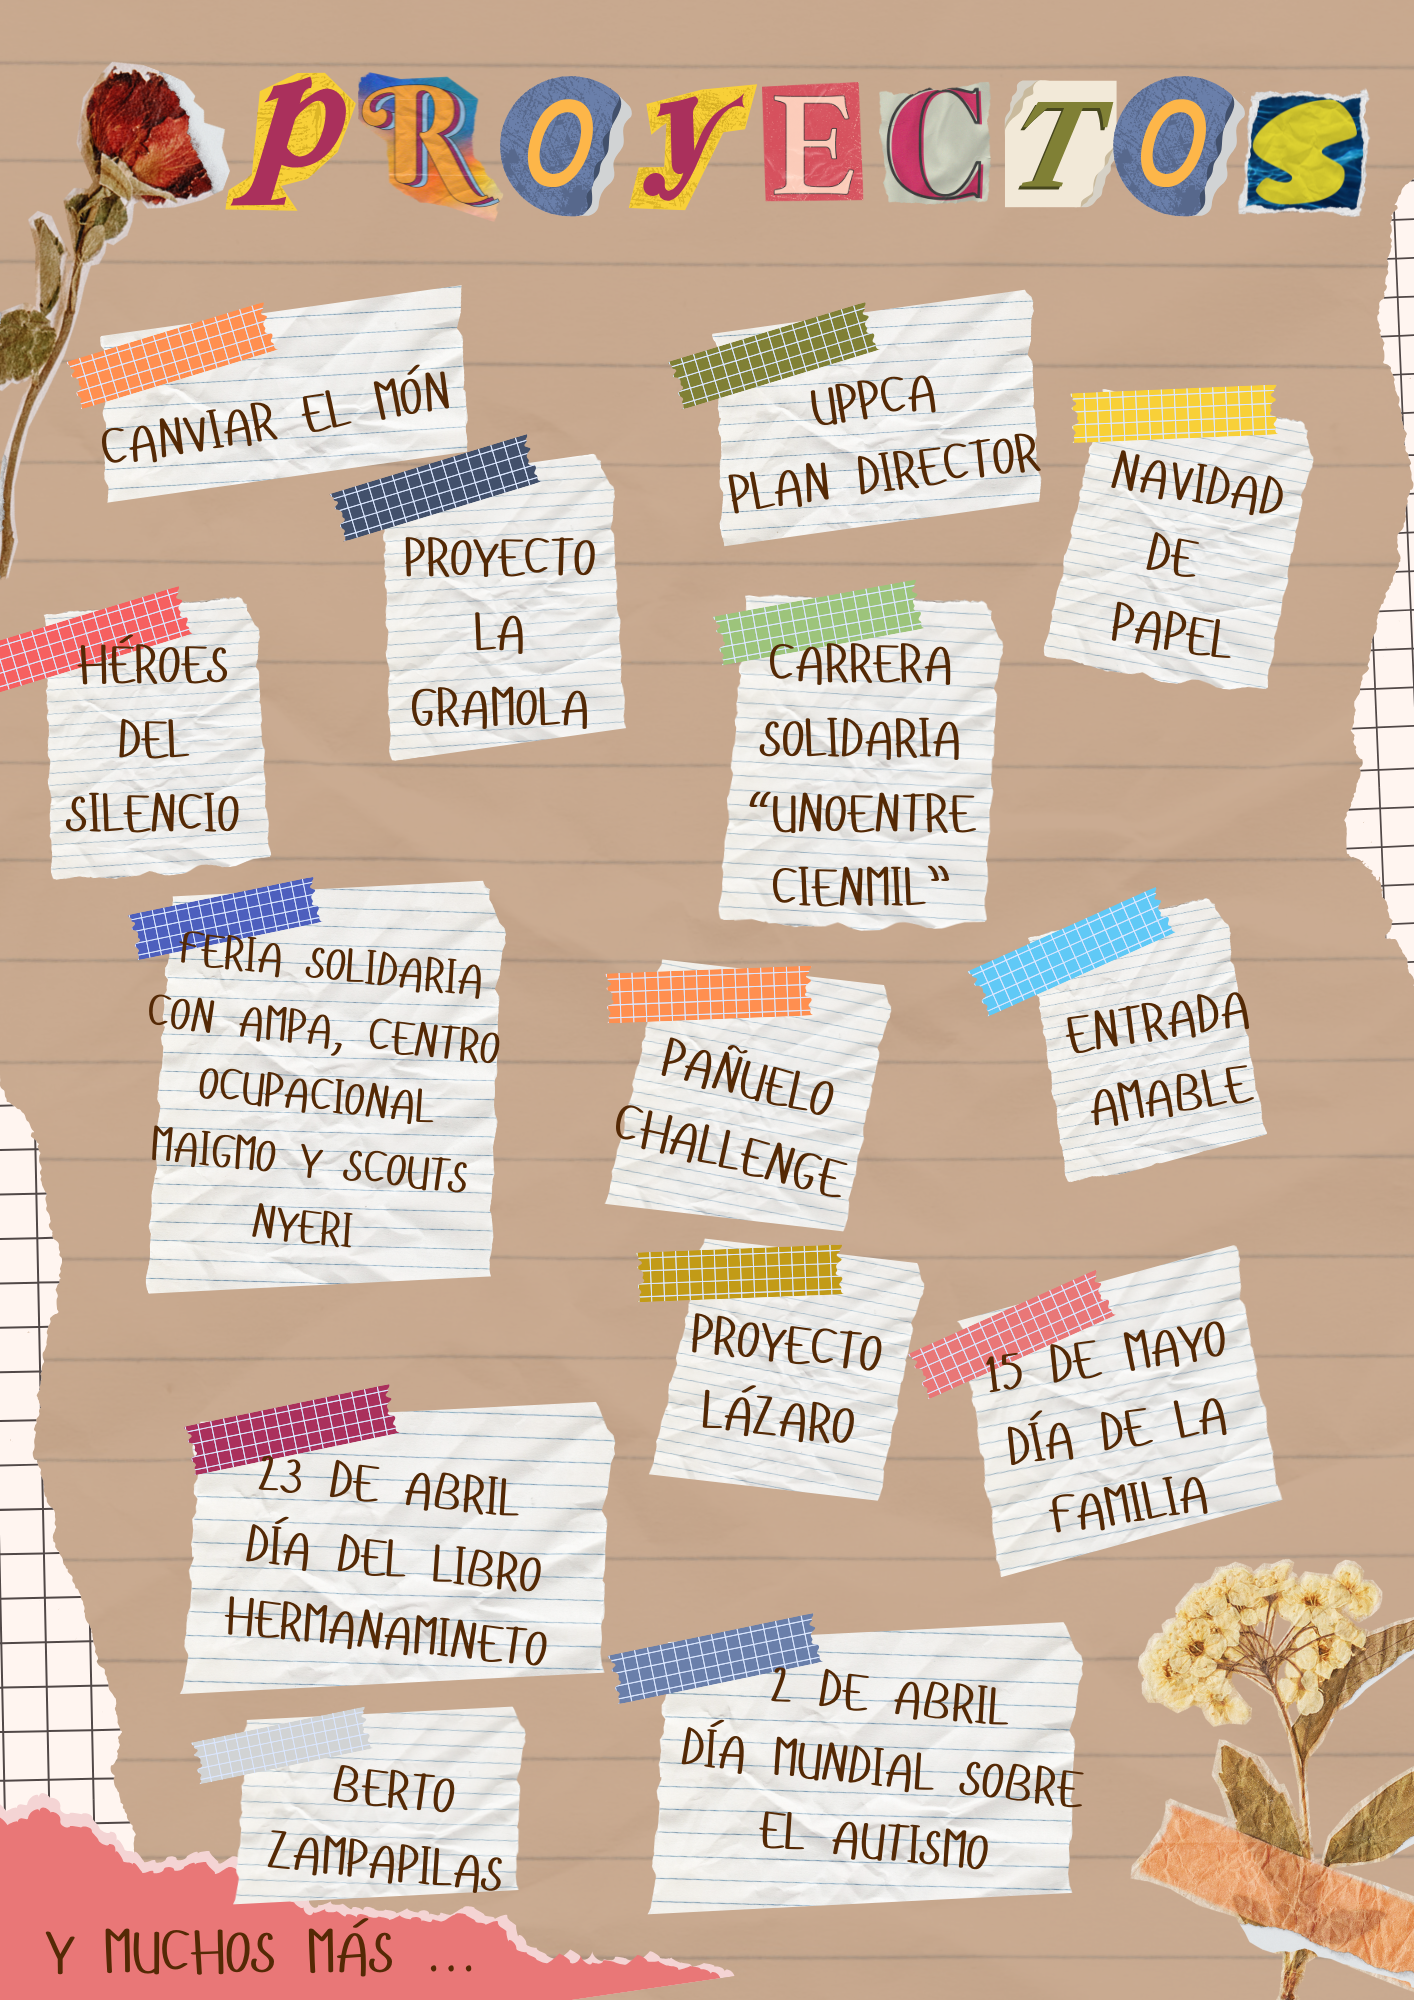 PROYECTOS
CANVIAR EL MÓN
UPPCA
PLAN DIRECTOR
NAVIDAD
DE
PAPEL
PROYECTO
LA
GRAMOLA
HÉROES
DEL
SILENCIO
CARRERA
SOLIDARIA
“UNOENTRE
CIENMIL”
FERIA SOLIDARIA
CON AMPA, CENTRO
OCUPACIONAL
MAIGMO Y SCOUTS
NYERI
PAÑUELO
CHALLENGE
ENTRADA
AMABLE
PROYECTO
LÁZARO
15 DE MAYO
DÍA DE LA
FAMILIA
23 DE ABRIL
DÍA DEL LIBRO
HERMANAMINETO
2 DE ABRIL
DÍA MUNDIAL SOBRE
EL AUTISMO
BERTO
ZAMPAPILAS
Y MUCHOS MÁS ...